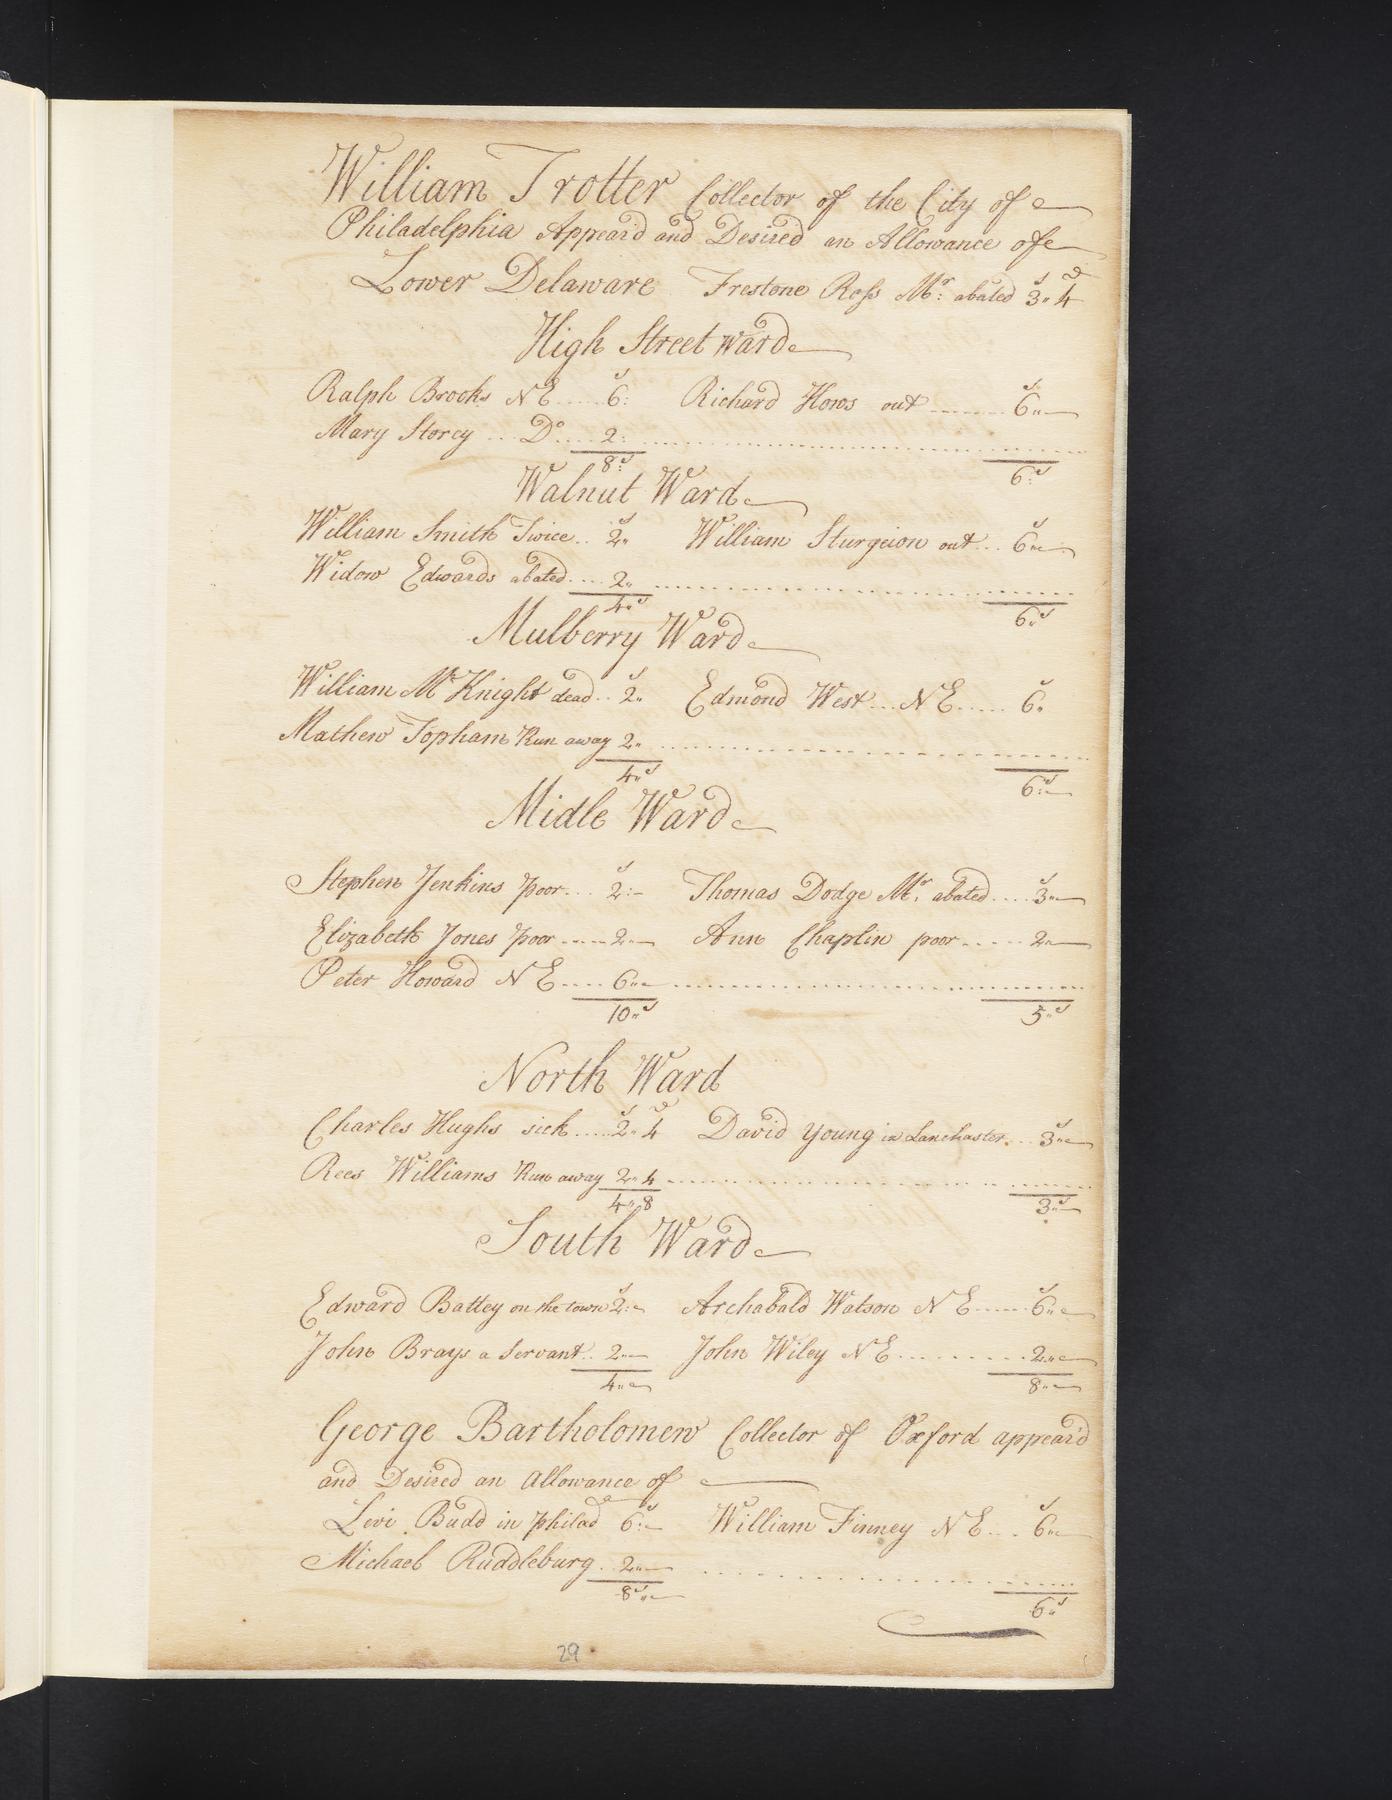 William Trotter Collector of the City of
Philadelphia Appear'd and Desired an Allowance of
Lower Delaware Frestone Ross Mr: abated 3s" 4d
High Street Ward
Ralph Brooks N E ..... 6s: Richard Hows out ....... 6s"
Mary Storey ... Do .... 2:
8:s 6:s
Walnut Ward
William Smith Twice .. 2s" William Sturgeion out ... 6s"
Widow Edwards abated .... 2"
4"s 6"s
Mulberry Ward
William McKnight dead .. 2s" Edmond West .... N E ..... 6s"
Mathew Topham Run away 2"
4"s 6:s
Midle Ward
Stephen Jenkins poor ... 2s:- Thomas Dodge Mr. abated .... 3s"
Elizabeth Jones poor ..... 2" Ann Chaplin poor ..... 2"
Peter Howard N E .... 6"
10"s 5"s
North Ward
Charles Hughs sick ..... 2s" 4d David Young in Lanchaster ... 3s"
Rees Williams Run away 2" 4
4" 8 3"s
South Ward
Edward Battey on the town 2s:" Archabald Watson N E ...... 6s"
John Brays a Servant .. 2" John Wiley N E ......... 2"
4" 8"
George Bartholomew Collector of Oxford appear'd
and Desired an Allowance of
Livi Budd in Philad 6s:- William Finney N E ... 6s"
Michael Ruddleburg .. 2"
8s" 6"s
29